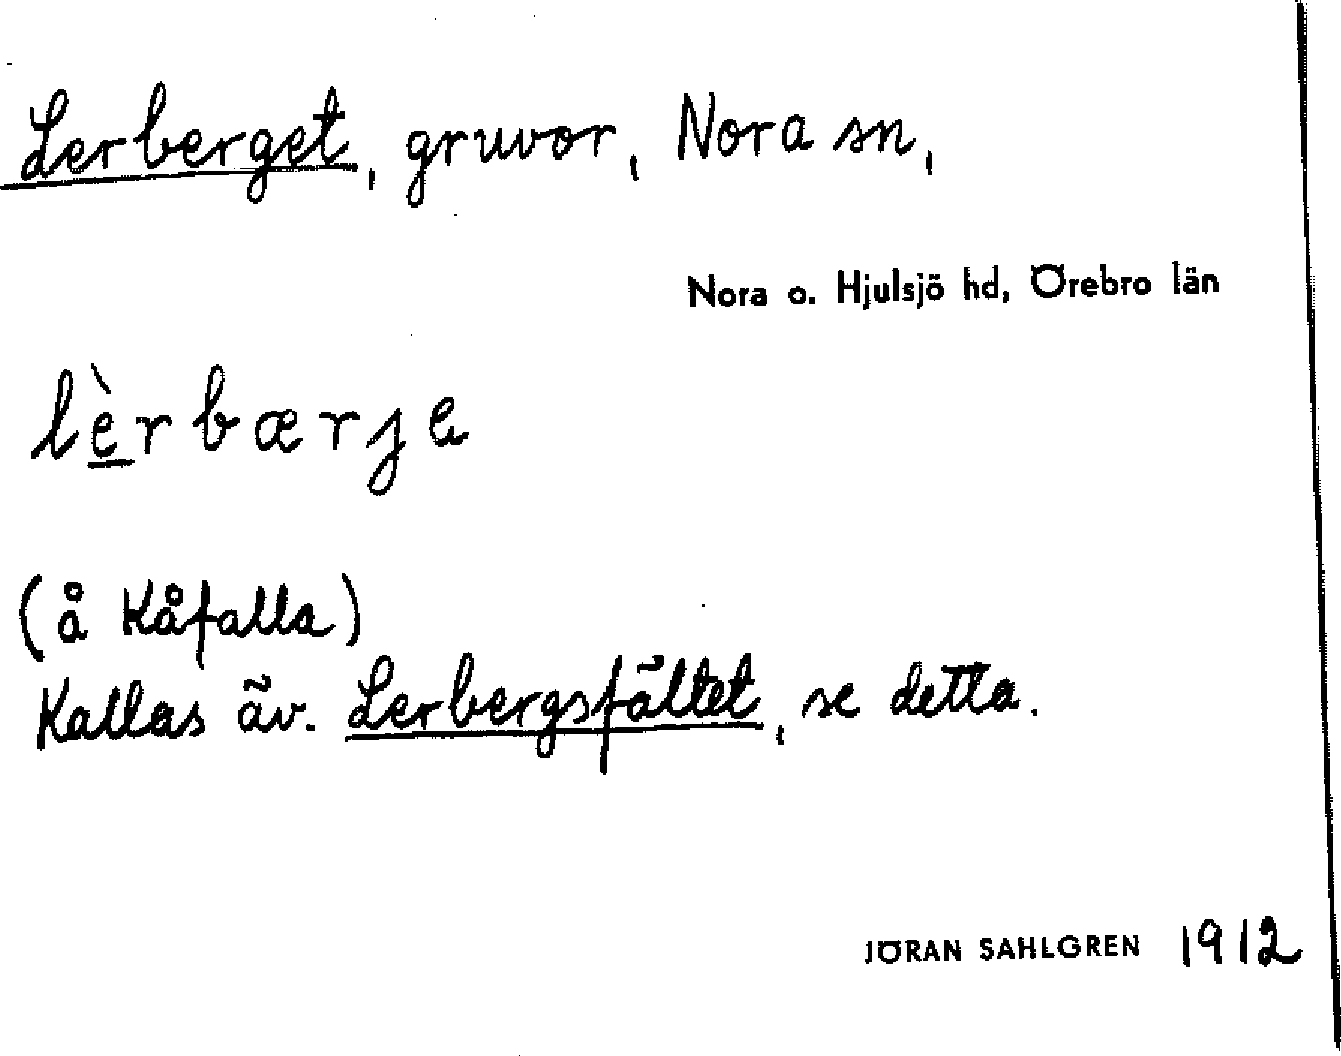 Lerberget, gruvor, Nora sn,
Nora o. Hjulsjö hd, Örebro län
lèrbærje
(å Kåfalla)
Kallas äv. Lerbergsfältet, se detta.
JÖRAN SAHLGREN 1912